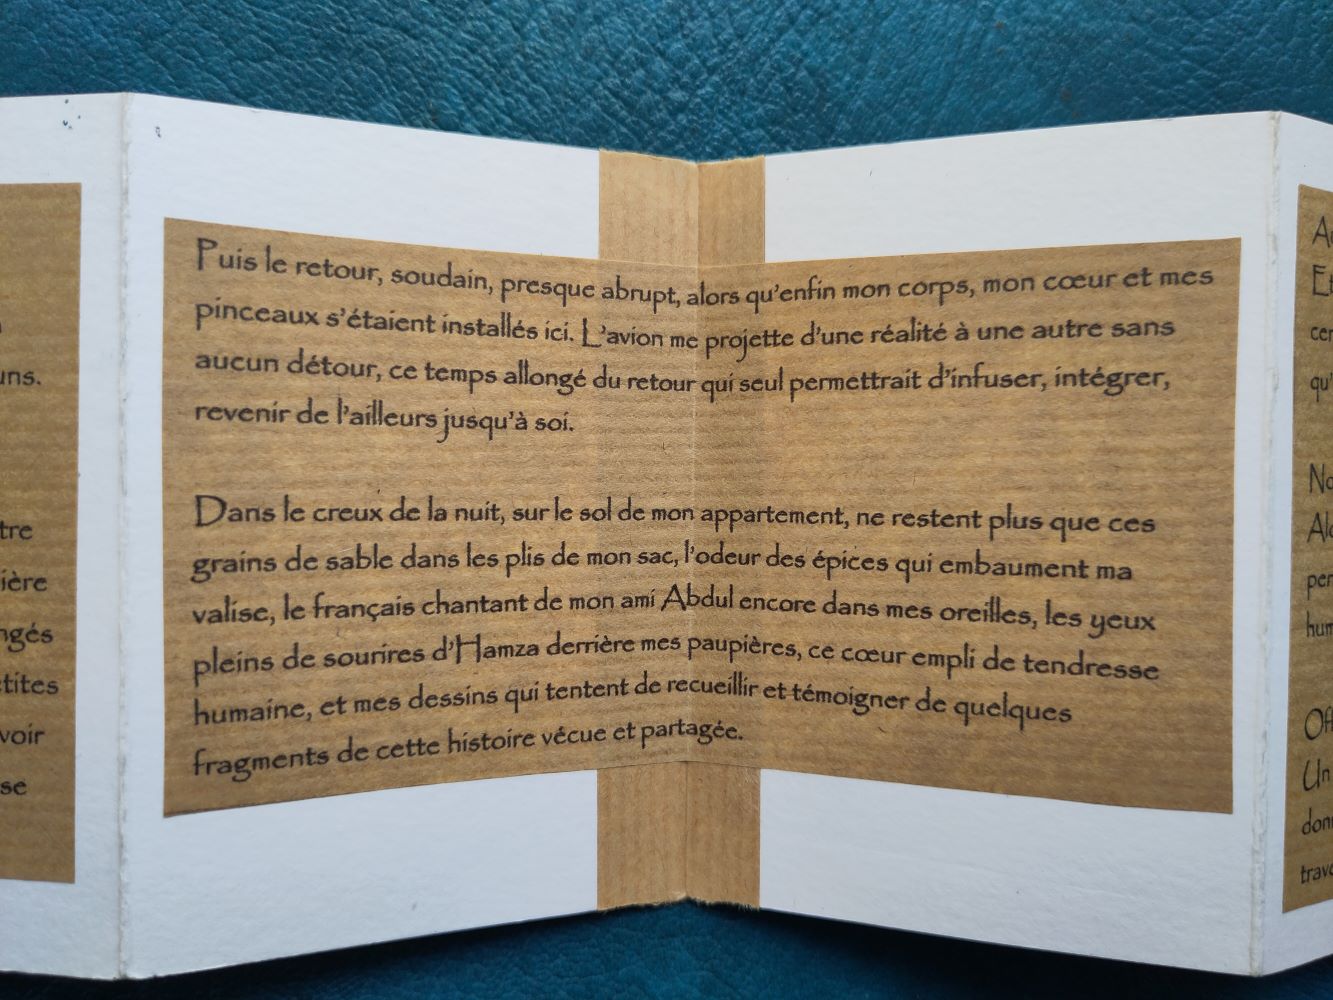 uns.
tre
ière
ngés
tites
voir
se
Puis le retour, soudain, presque abrupt, alors qu'enfin mon corps, mon cœur et mes
pinceaux s'étaient installés ici. L'avion me projette d'une réalité à une autre sans
aucun détour, ce temps allongé du retour qui seul permettrait d'infuser, intégrer,
revenir de l'ailleurs jusqu'à soi.
Dans le creux de la nuit, sur le sol de mon appartement, ne restent plus que ces
grains de sable dans les plis de mon sac, l'odeur des épices qui embaument ma
valise, le français chantant de mon ami Abdul encore dans mes oreilles, les yeux
pleins de sourires d'Hamza derrière mes paupières, ce cœur empli de tendresse
humaine, et mes dessins qui tentent de recueillir et témoigner de quelques
fragments de cette histoire vécue et partagée.
cer
qu'
No
Al
per
hum
Un
don
trav